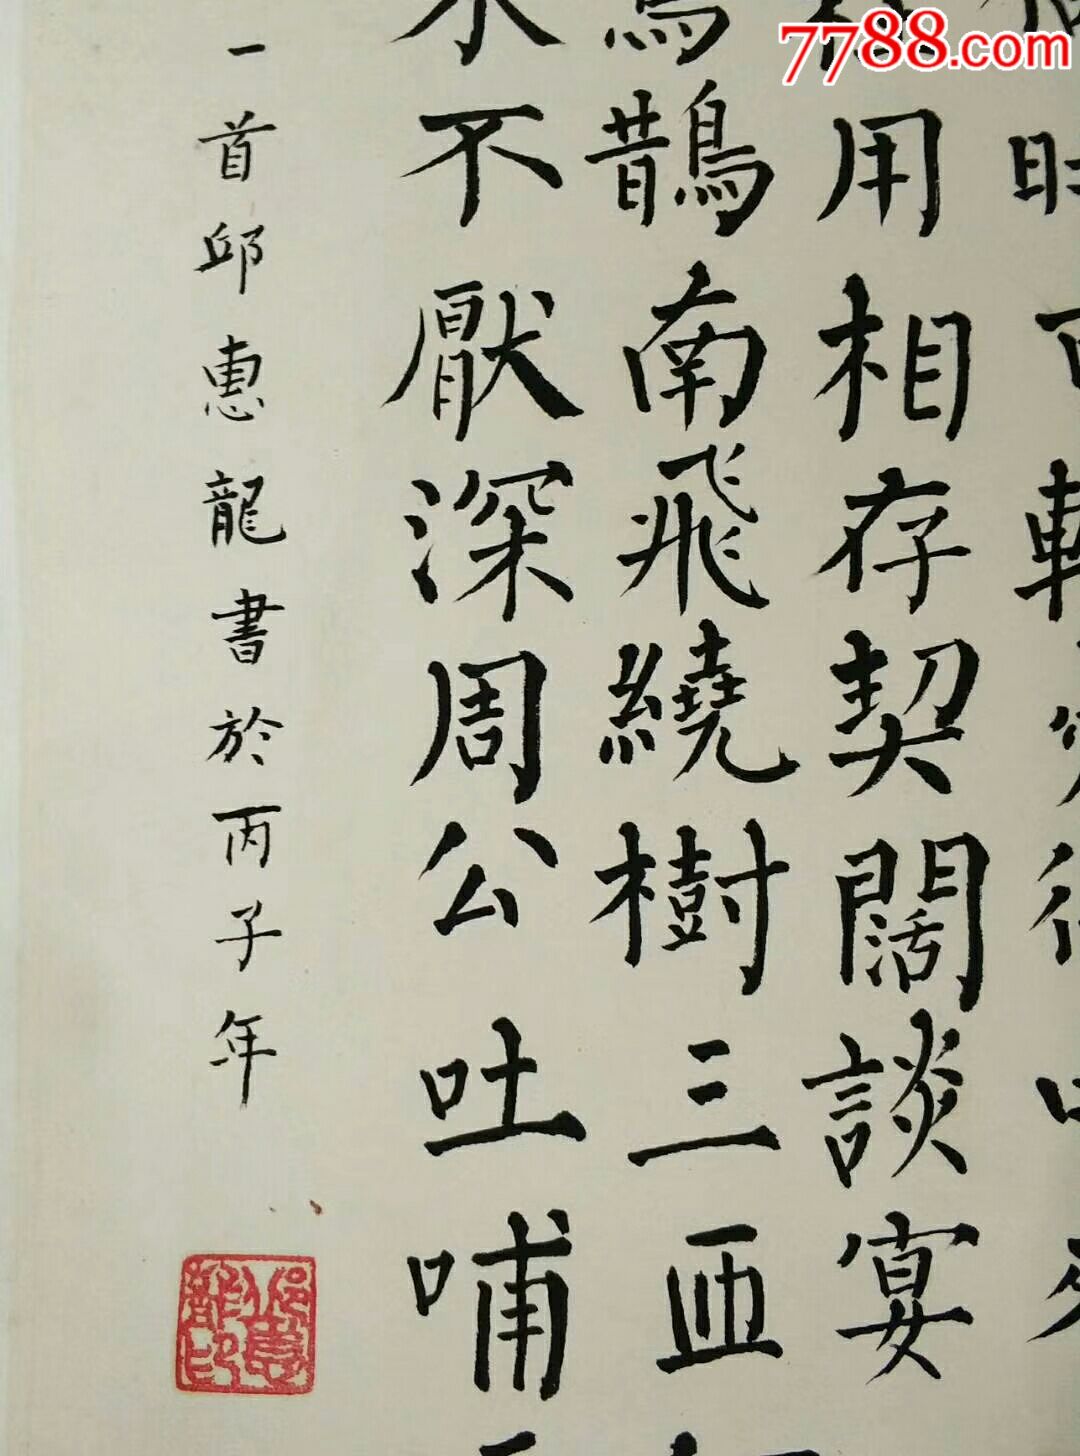 7788.com
時可輟
用相存契闊談宴
烏鵲南飛繞樹三匝
水不厭深周公吐哺
一首邱惠龍書於丙子年
邱惠龍印